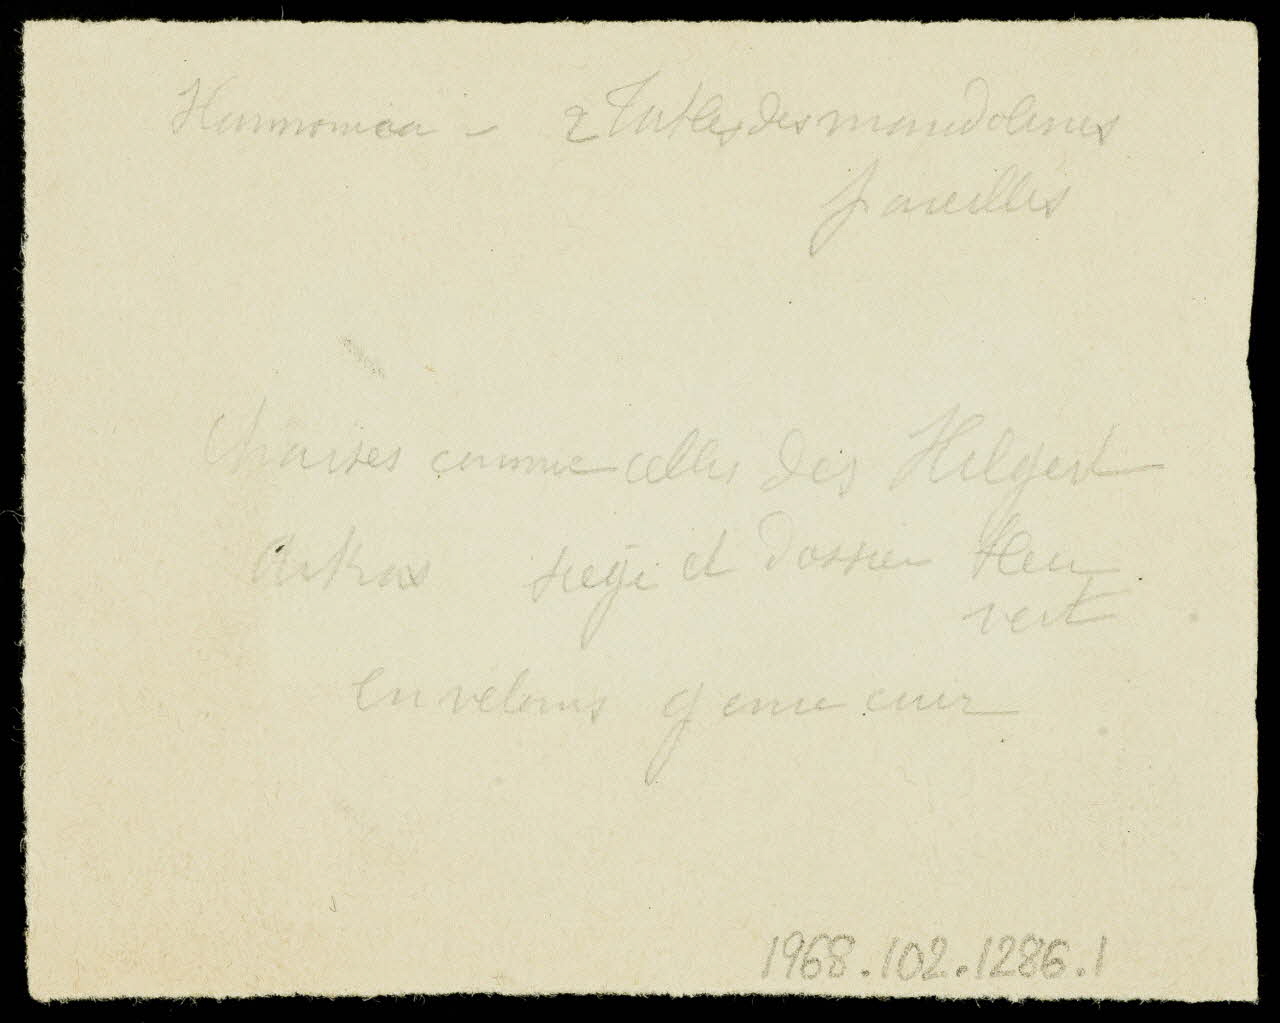 2 Tables des mandolines
pareilles
Chaises comme celles des Hilgert
siège et dossier bleu
vert
en velours genre cuir
1968.102.1286.1